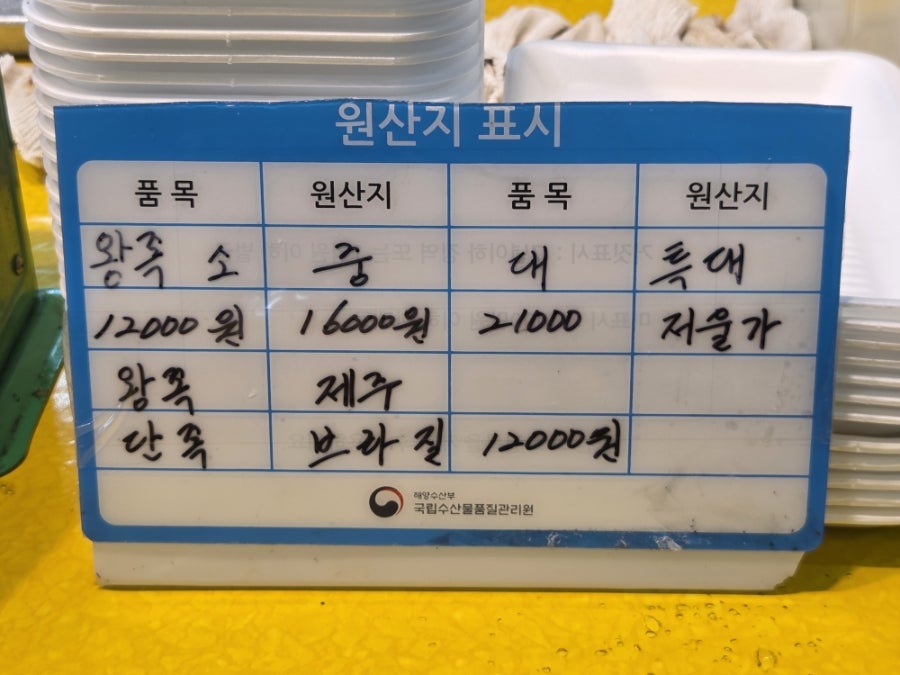 원산지 표시
품목 원산지 품목 원산지
왕족 소 중 대 특대
12000원 16000원 21000 저울가
왕쪽 제주
단쪽 브라질 12000원
해양수산부
국립수산물품질관리원